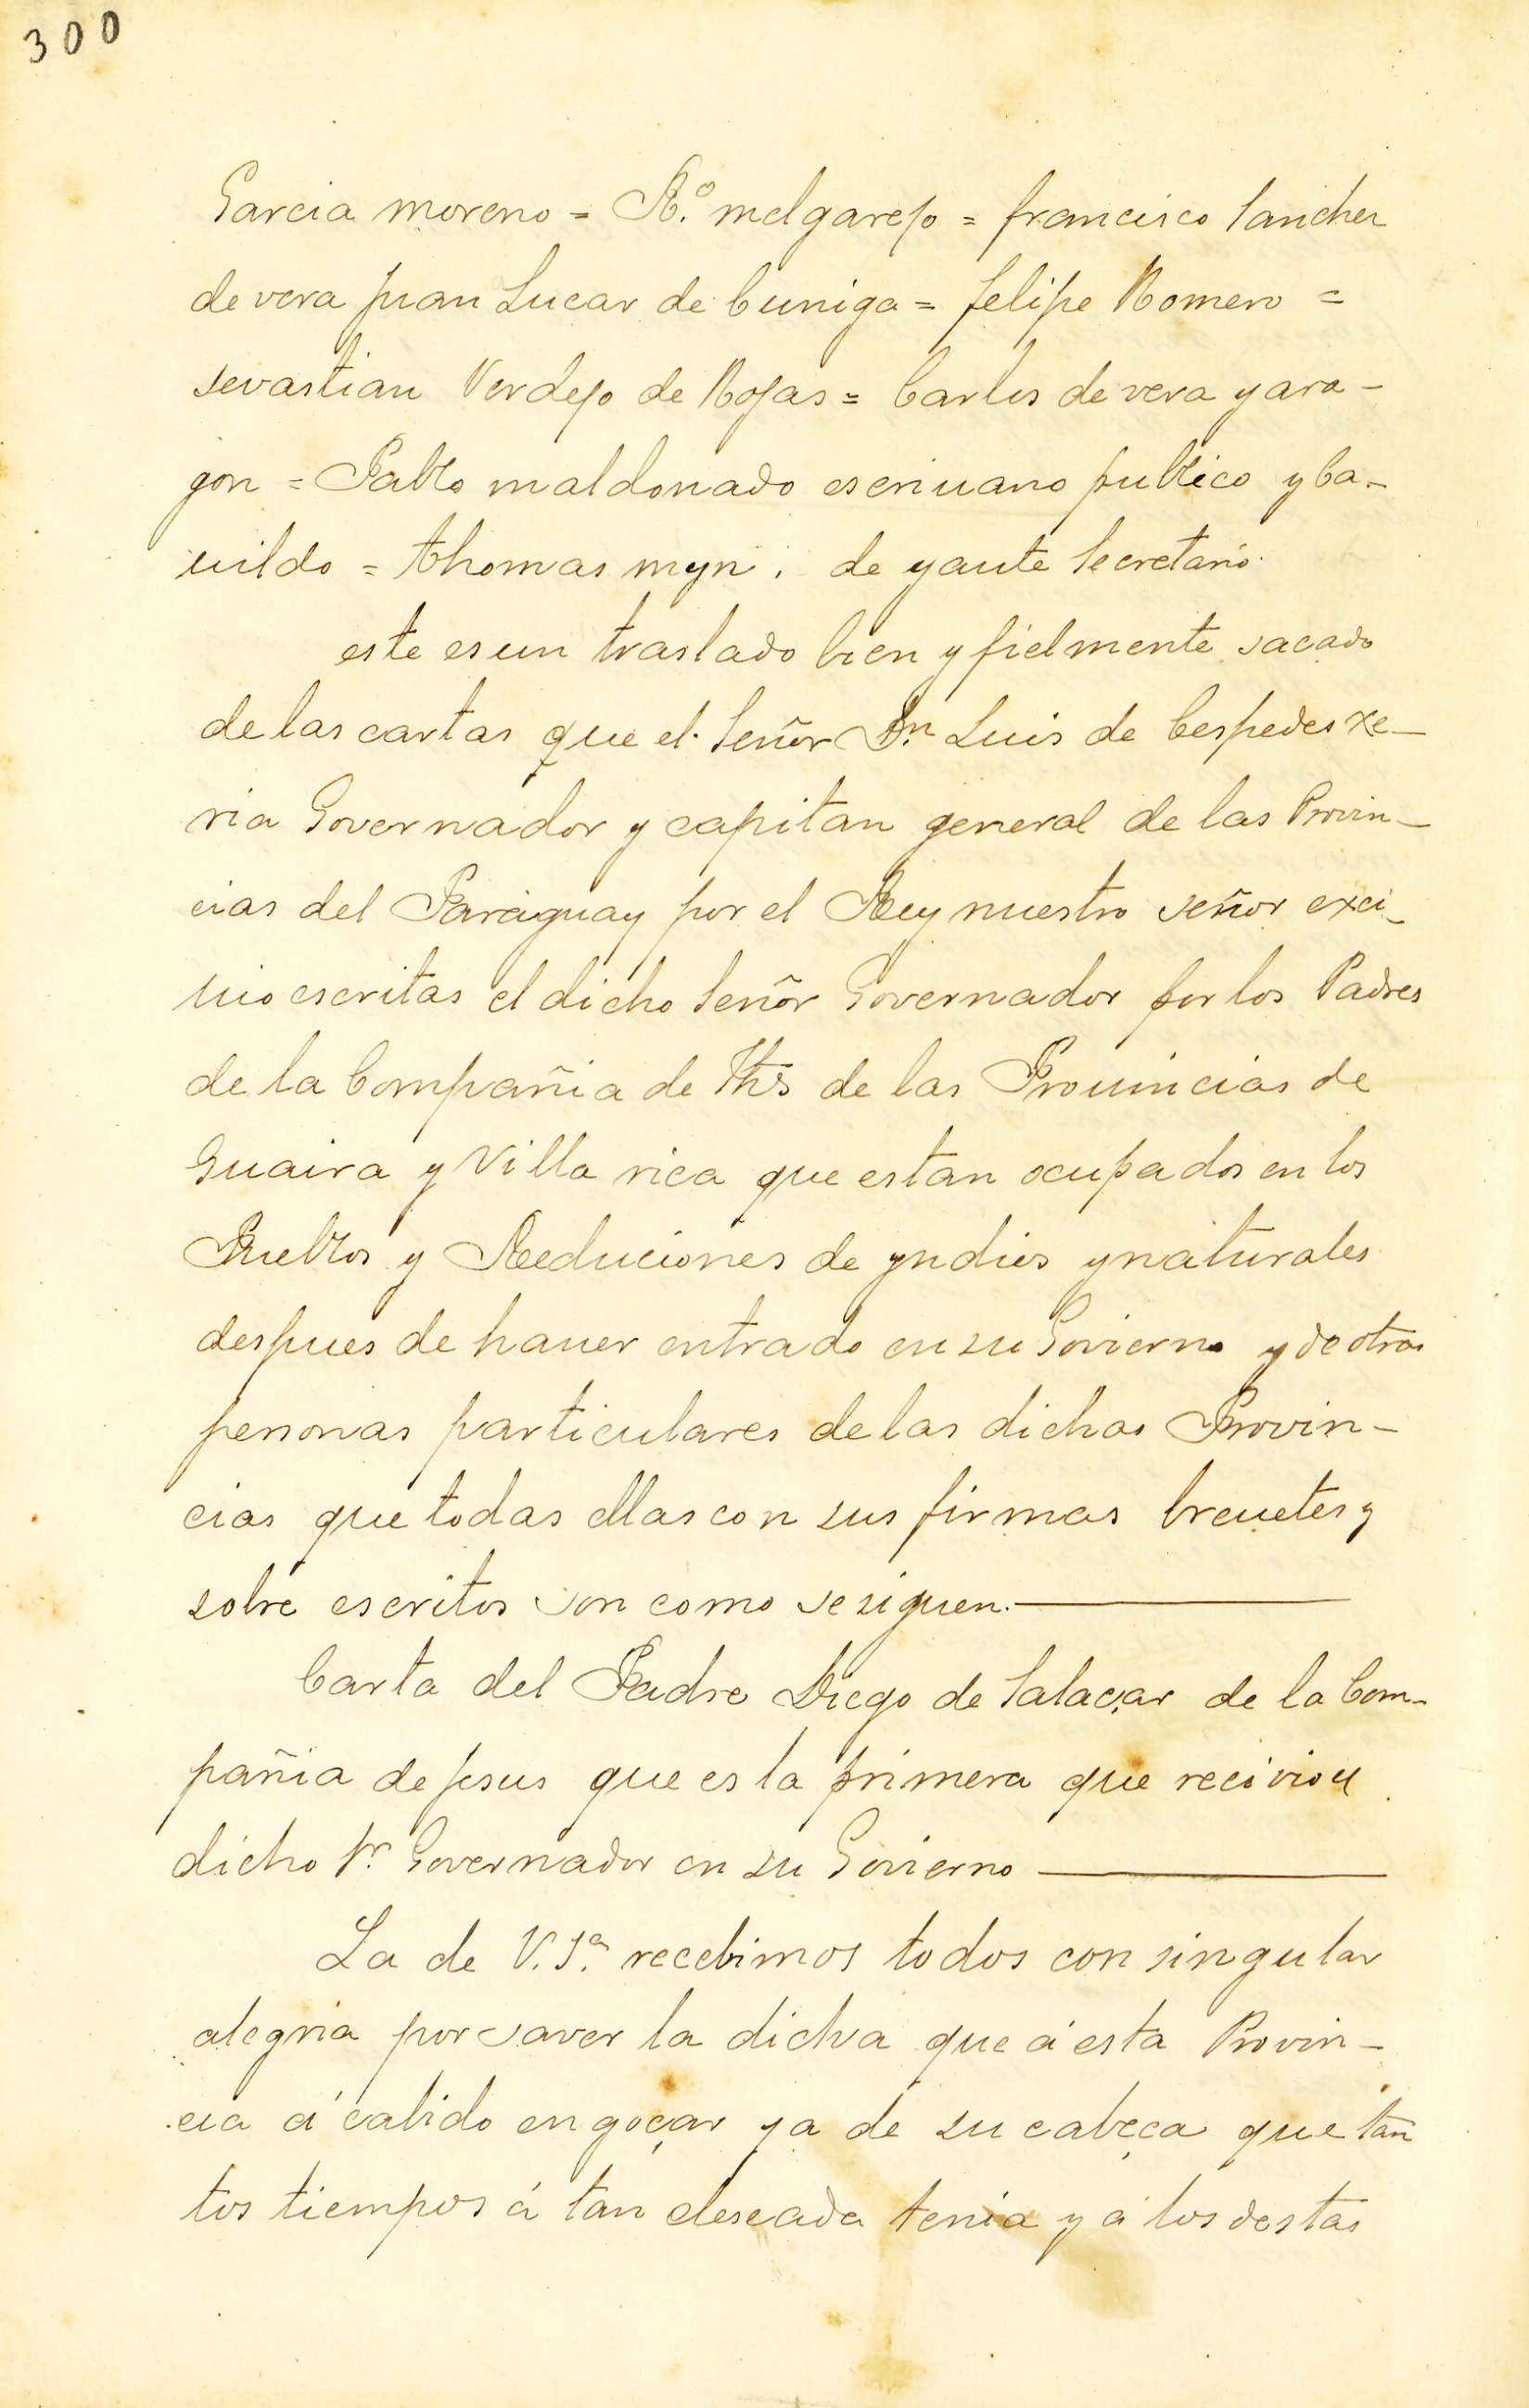 300
Garcia moreno = R.º melgarejo = francisco Sanches
de vera juan Lucar de Cuniga = felipe Romero =
sevastian Verdejo de Rojas = Carlos de vera y ara-
gon = Pablo maldonado escriuano publico y Ca-
uildo = thomas myn. de yante Secretario.
este es un traslado bien y fielmente sacado
de las cartas que el Señor Dn. Luis de Cespedes xe-
ria Governador y capitan general de las Provin-
cias del Paraiguay por el Rey nuestro señor exci-
uio escritas el dicho Señor Governador por los Padres
de la Compañia de Ihs de las Prouincias de
Guaira y Villa rica que estan ocupados en los
Pueblos y Reduciones de yndios y naturales
despues de hauer entrado en su Govierno y de otras
personas particulares de las dichas Provin-
cias que todas ellas con sus firmas breuetes y
sobre escritos son como se siguen.
Carta del Padre Diego de Salaçar de la Com-
pañia de Jesus que es la primera que recivio el
dicho Sr. Governador en su Govierno
La de V. Sª. recebimos todos con singular
alegria por saver la dicha que á esta Provin-
cia á cabido en goçar ya de su cabeça que tan
tos tiempos á tan deseada tenia y á los destas